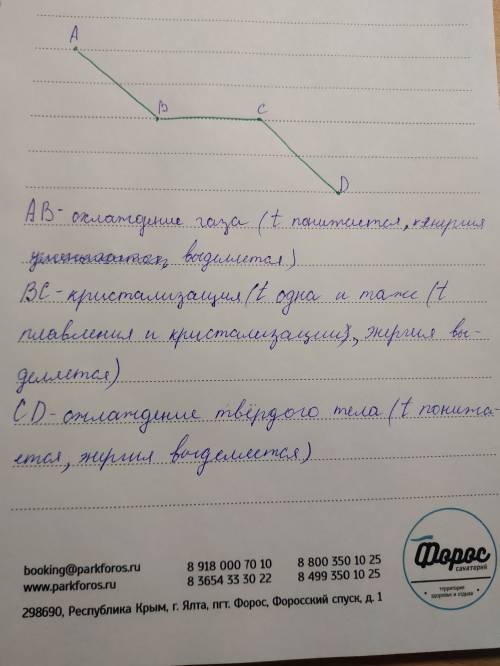 A
B
C
D
AB - охлаждение газа (t понижается, энергия
выделяется)
BC - кристализация (t одна и таже (t
плавления и кристализации), энергия вы-
деляется)
CD - охлаждение твёрдого тела (t понижа-
ется, энергия выделяется)
booking@parkforos.ru 8 918 000 70 10 8 800 350 10 25
www.parkforos.ru 8 3654 33 30 22 8 499 350 10 25
298690, Республика Крым, г. Ялта, пгт. Форос, Форосский спуск, д. 1
Форос
санаторий
территория
здоровья и отдыха